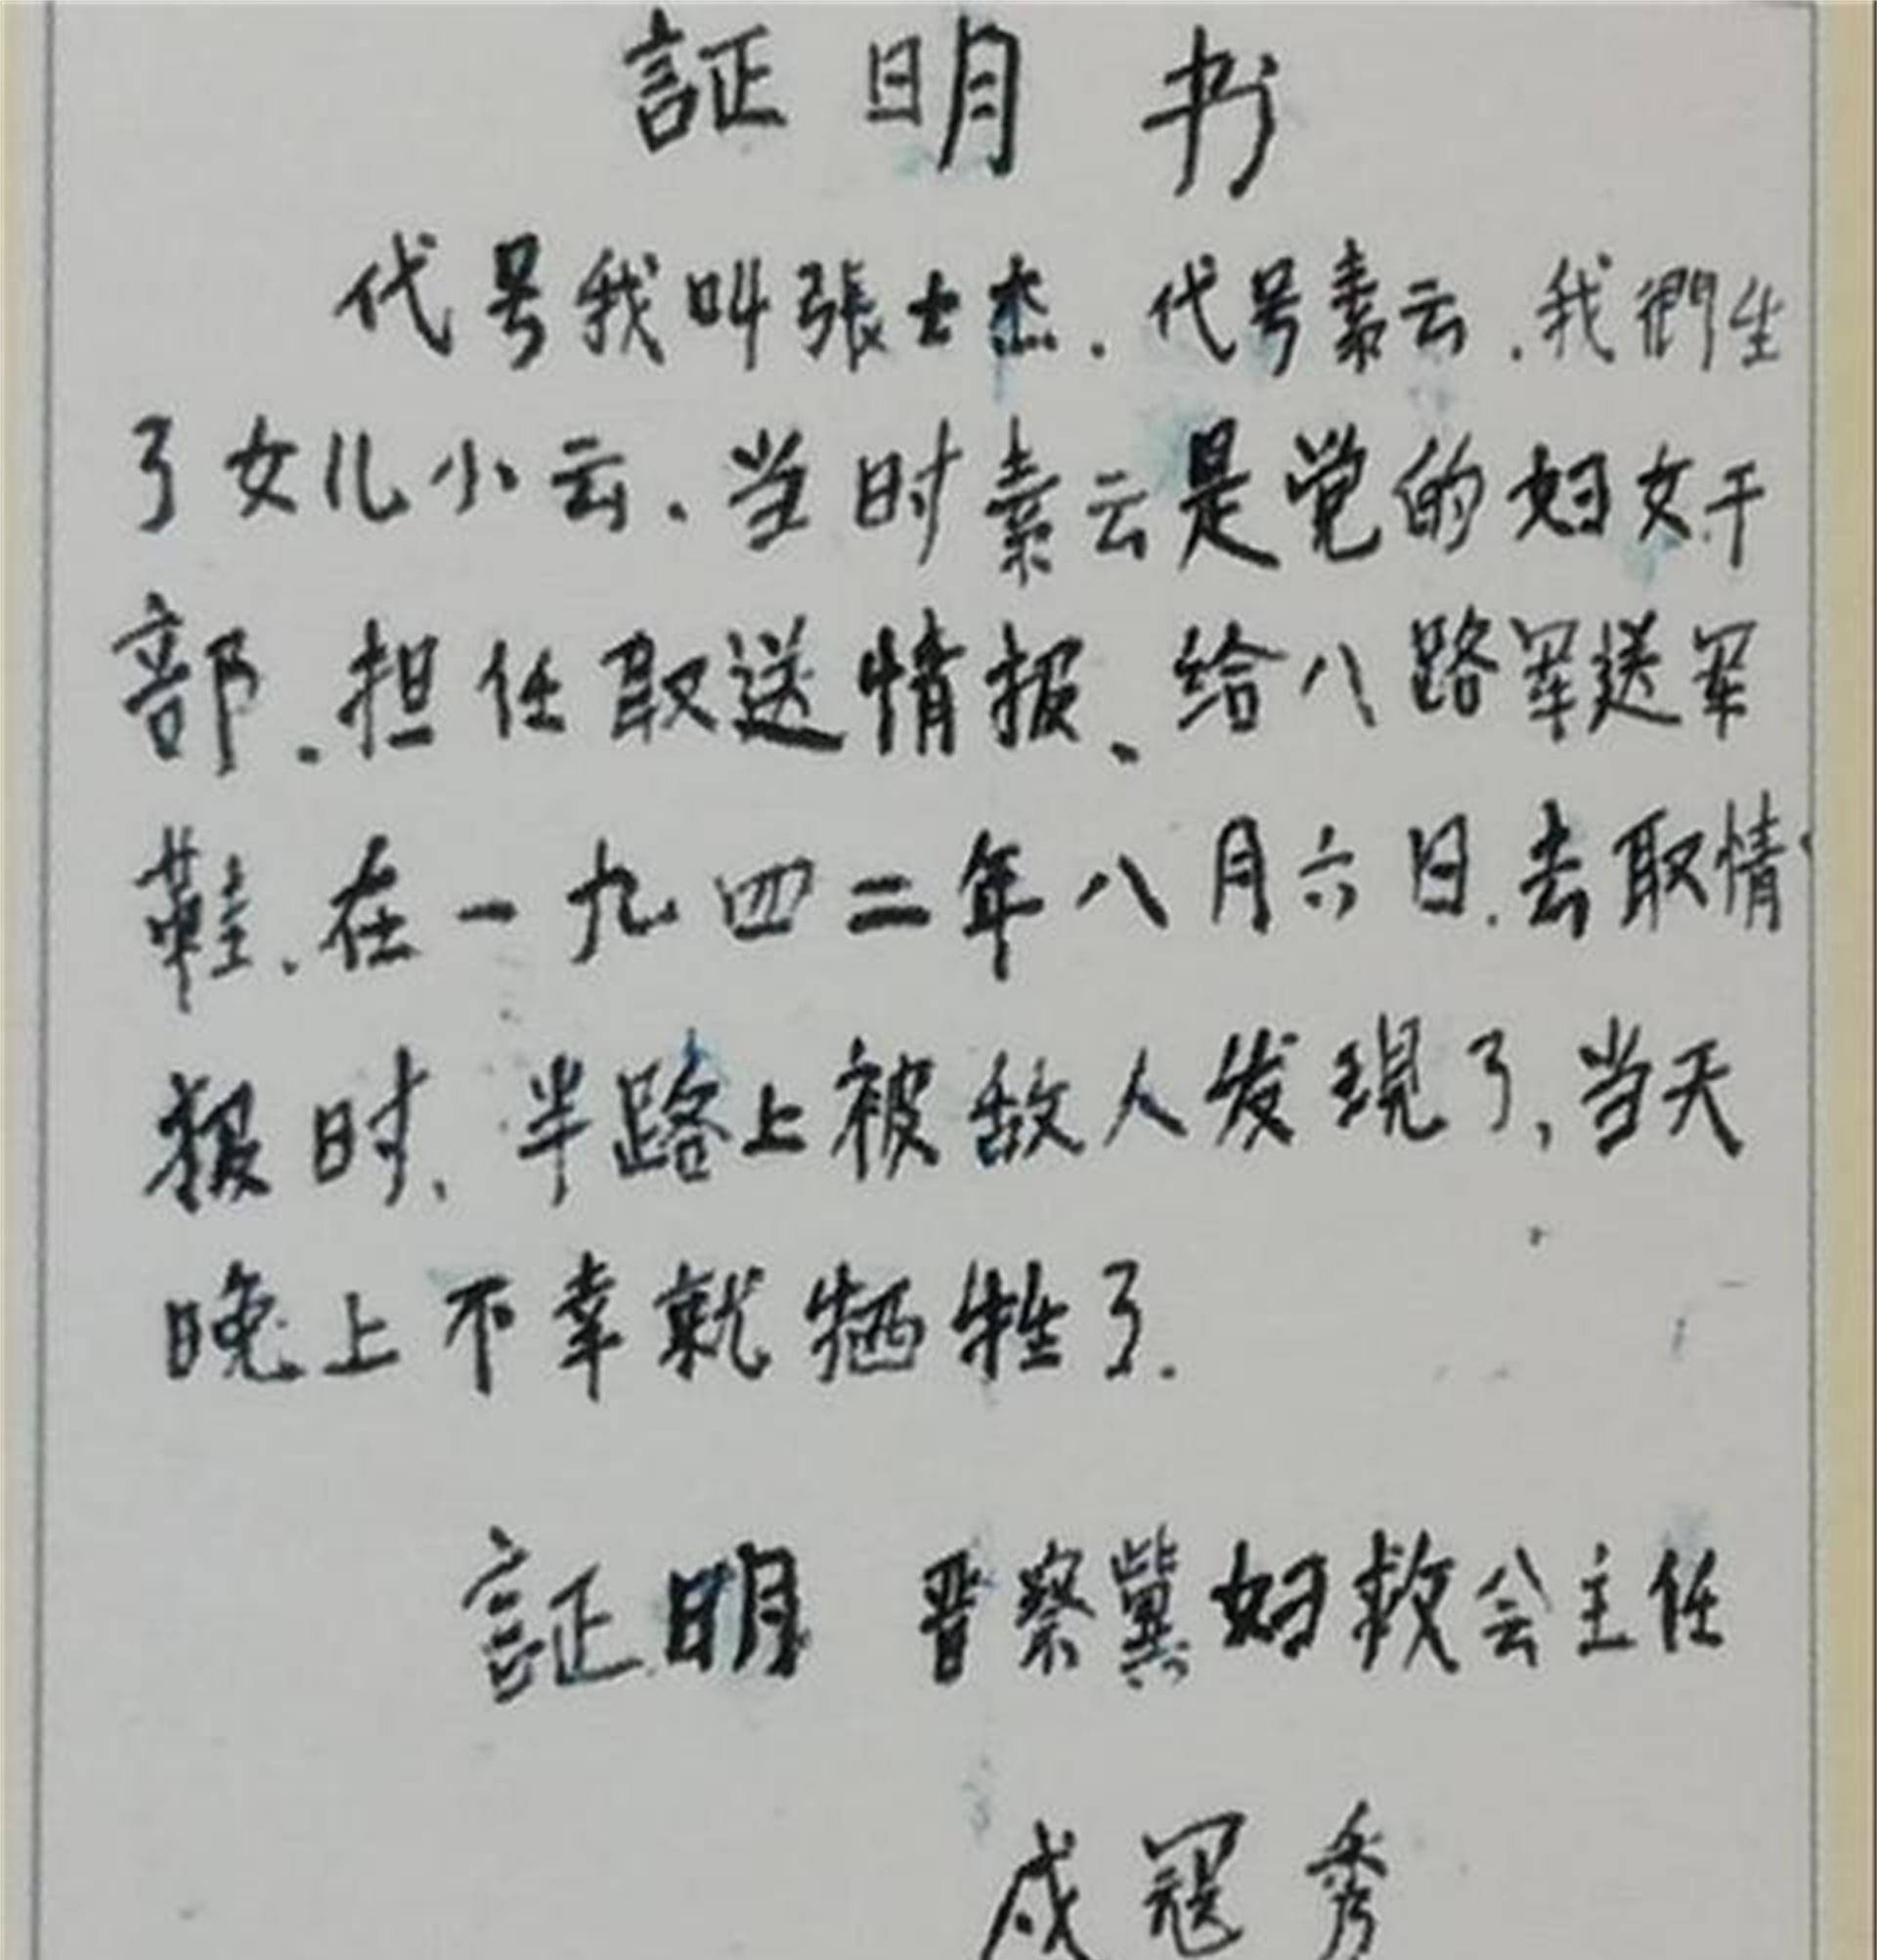 証明书
代号我叫張士杰.代号素云.我們生
了女儿小云.当时素云是党的妇女干
部.担任取送情报、给八路军送军
鞋.在一九四二年八月六日.去取情
报时、半路上被敌人发現了,当天
晚上不幸就牺牲了.
証明 晋察冀妇救会主任
成冠秀